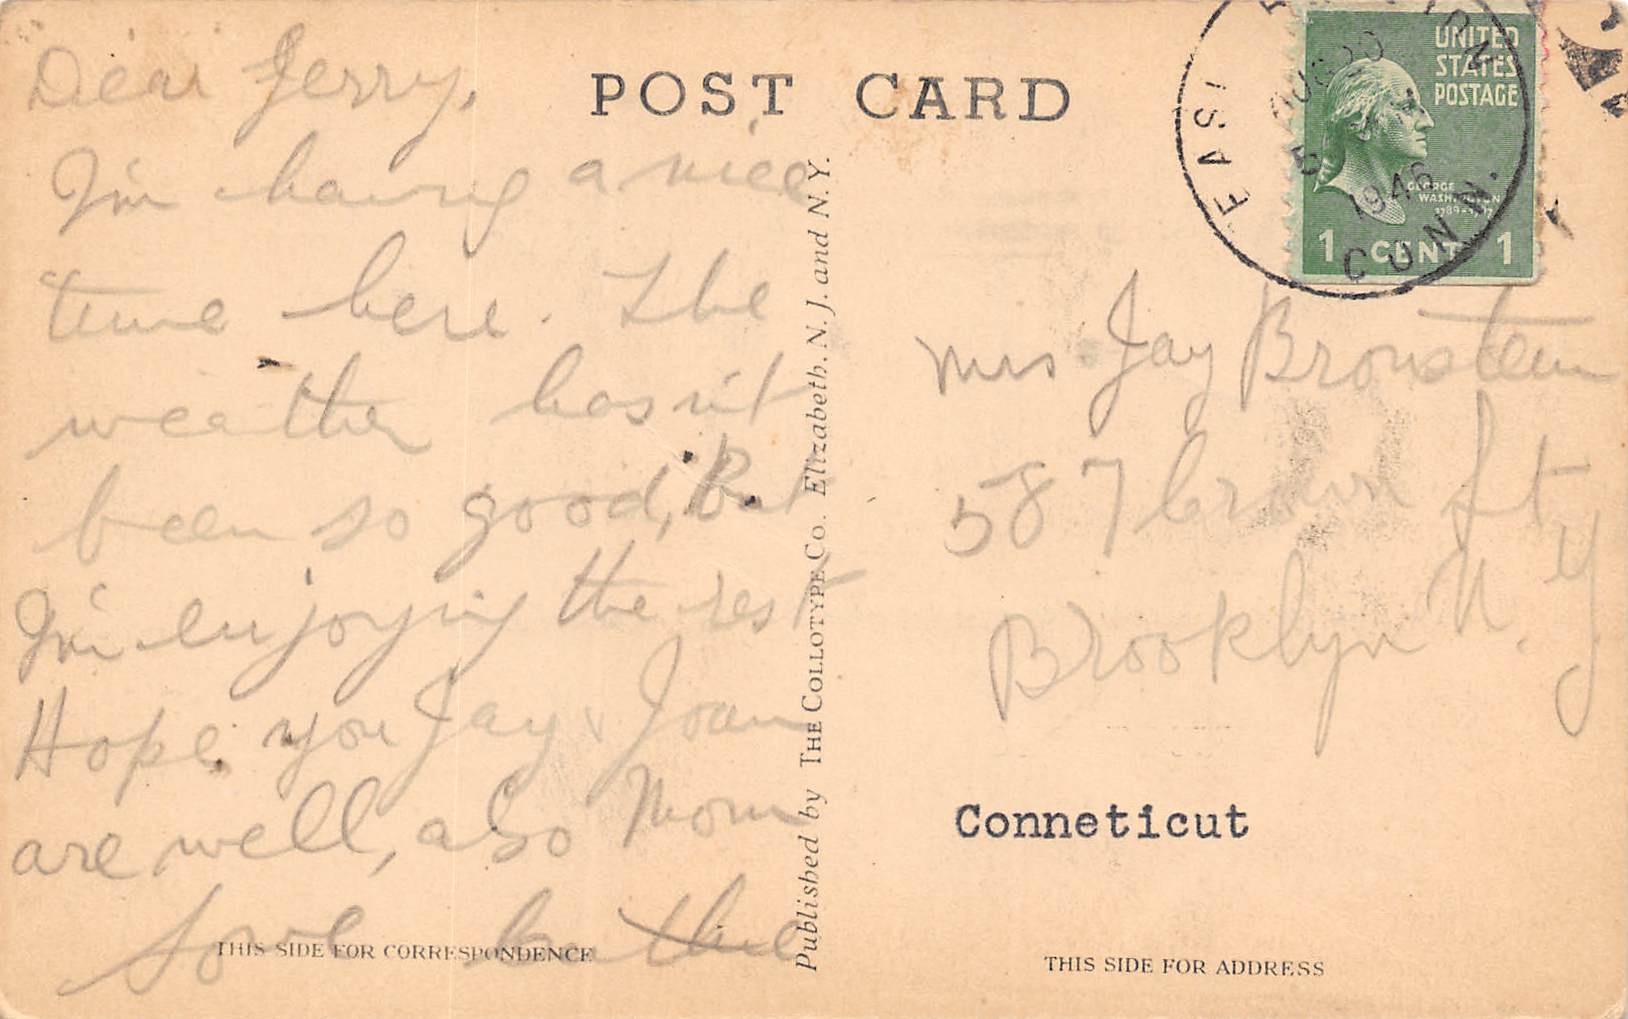 POST CARD
Dear Jerry,
I'm having a nice
time here. The
weather hasn't
been so good, But
I'm enjoying the rest
Hope you Jay & Joan
are well, also Mom
Love
THIS SIDE FOR CORRESPONDENCE
Published by THE COLLOTYPE CO. Elizabeth, N. J. and N. Y.
EAST
AUG 20
1946
CONN.
UNITED
STATES
POSTAGE
GEORGE
WASHINGTON
1789-1797
1 CENT 1
Mrs Jay Bronstein
587 St
Brooklyn N. Y
Conneticut
THIS SIDE FOR ADDRESS